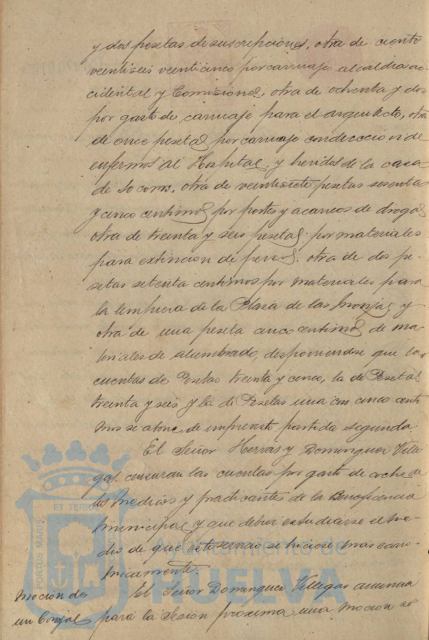 y dos pesetas de suscripciones, otra de ciento
veintiseis veinticinco por carruaje alcaldia ac
cidental y Comisiones, otra de ochenta y dos
por gasto de carruaje para el arquitecto, otra
de once pesetas por carruaje conduccion de
enfermos al Hospital, y heridos de la casa
de Socorro, otra de veintisiete pesetas sesenta
y cinco centimos por portes y acarreos de drogas
otra de treinta y seis pesetas por materiales
para extincion de perros, otra de dos pe
setas setenta centimos por materiales para
la limpieza de la Plaza de las Monjas y
otra de una peseta cinco centimos de ma
teriales de alumbrado, disponiendose que las
cuentas de Pesetas treinta y cinco, la de Pesetas
treinta y seis y la de Pesetas una con cinco centi
mos se abone de imprevisto partida segunda
El Señor Hervas y Dominguez Ville
gas censuran las cuentas por gasto de coche de
los medicos y practicantes de la Beneficencia
municipal y que debia estudiarse el me
dio de que este servicio se hiciera mas econo
micamente.
Mocion de
un Concejal
El Señor Dominguez Villegas anuncia
para la Sesion proxima una mocion
PORTUS MARIS
ET TERRAE
AYUNTAMIENTO DE
HUELVA